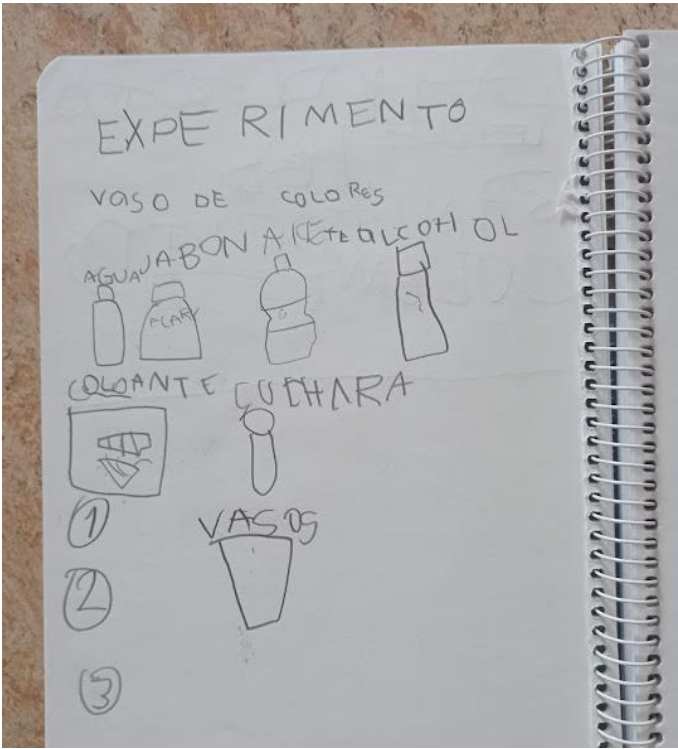 EXPERIMENTO
VASO DE COLORES
AGUA JABON ACEITE ALCOHOL
COLOANTE CUCHARA
1 VASOS
2
3